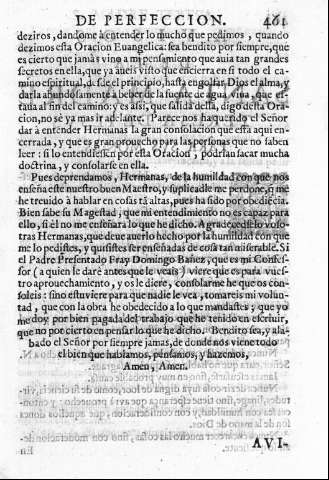 DE PERFECCION. 461
deziros, dandome a entender lo mucho que pedimos, quando
dezimos esta Oracion Euangelica: sea bendito por siempre, que
es cierto que jamàs vino a mi pensamiento que auia tan grandes
secretos en ella, que ya aueis visto que encierra en si todo el ca-
mino espiritual, desde el principio, hasta engolfar Dios el alma, y
darla abundosamente a beber de la fuente de agua viua, que es-
taua al fin del camino: y es assi, que salida della, digo desta Ora-
cion, no sè ya mas ir adelante. Parece nos ha querido el Señor
dar à entender Hermanas la gran consolacion que està aqui en-
cerrada, y que es gran prouecho para las personas que no saben
leer: si lo entendiessen por esta Oracion, podrian sacar mucha
doctrina, y consolarse en ella.
Pues deprendamos, Hermanas, de la humildad con que nos
enseña este nuestro buen Maestro, y suplicadle me perdone, q̃ me
he treuido à hablar en cosas tã altas, pues ha sido por obediẽcia.
Bien sabe su Magestad, que mi entendimiento no es capaz para
ello, si èl no me enseñara lo que he dicho. Agradecedselo voso-
tras Hermanas, que deue auerlo hecho por la humildad con que
me lo pedistes, y quisistes ser enseñadas de cosa tan miserable. Si
el Padre Presentado Fray Domingo Bañez, que es mi Confes-
sor (a quien le darè antes que le veais) viere que es para vues-
tro aprouechamiento, y os le diere, consolarme he que os con-
soleis: sino estuuiere para que nadie le vea, tomareis mi volun-
tad, que con la obra he obedecido a lo que mandastes; que yo
me doy por bien pagada del trabajo que he tenido en escriuir,
que no por cierto en pensar lo que he dicho. Bendito sea, y ala-
bado el Señor por siempre jamas, de donde nos viene todo
el bien que hablamos, pensamos, y hazemos,
Amen, Amen.
AVI-